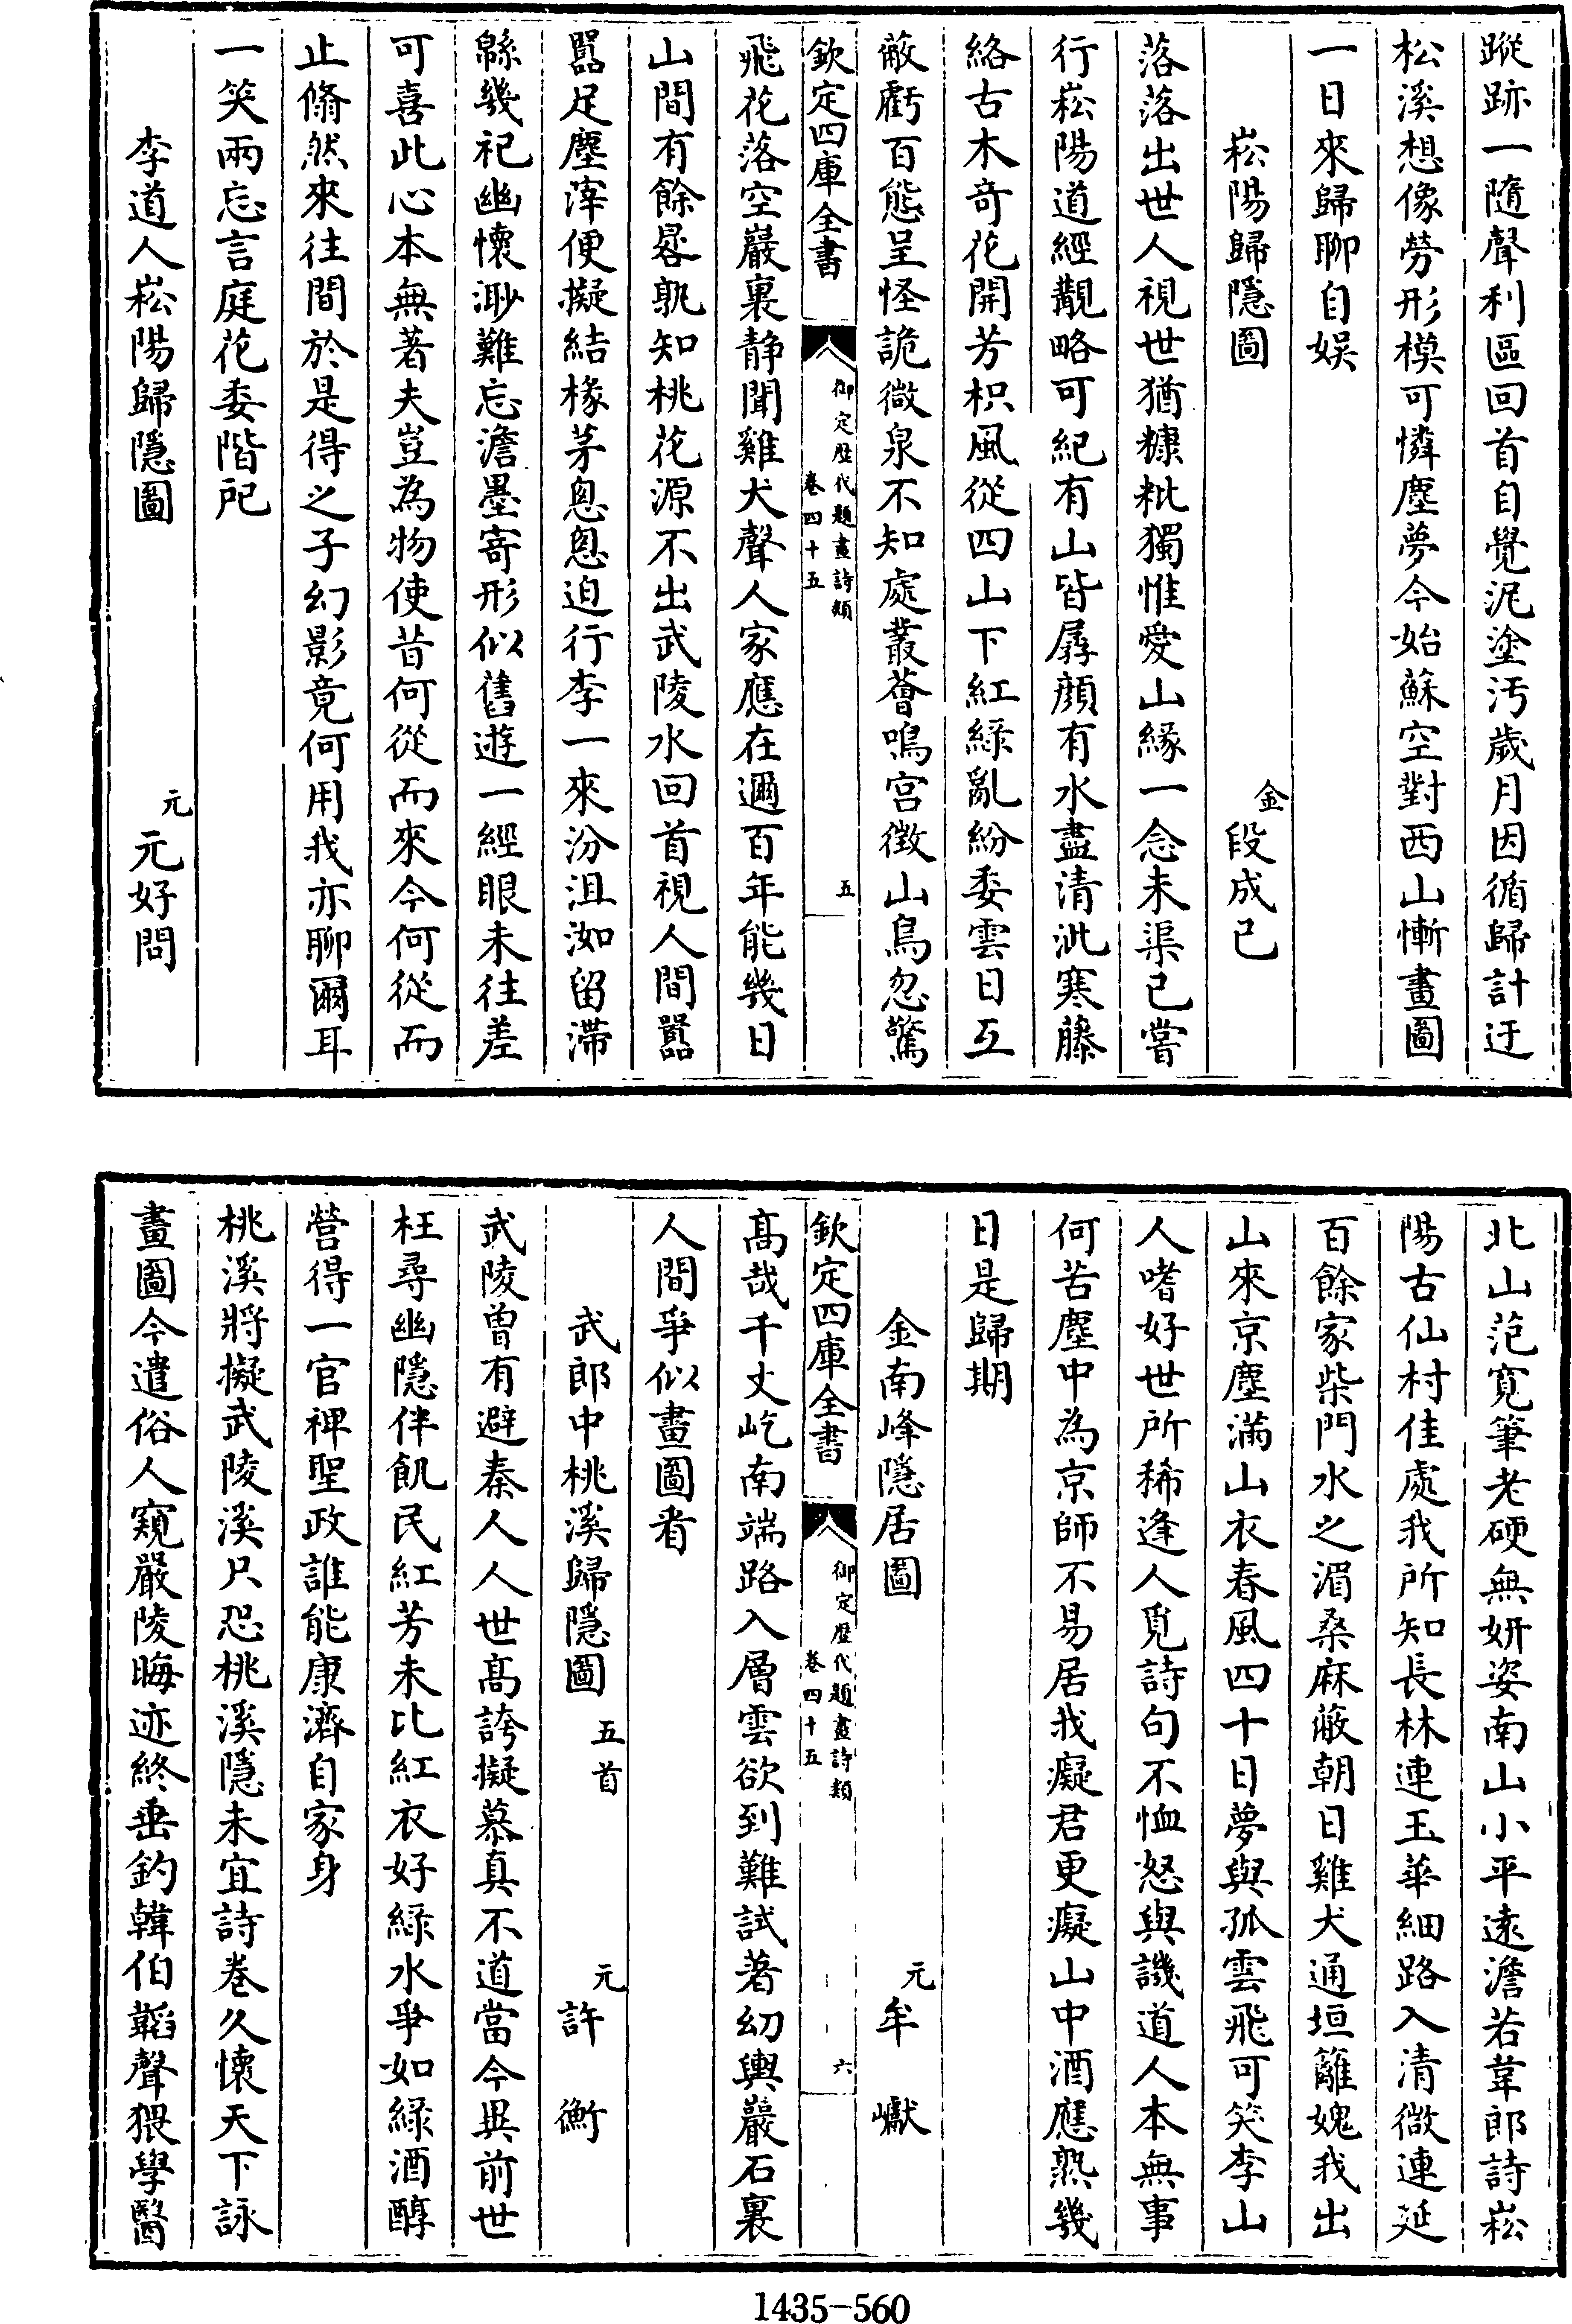 蹤跡一隨聲利區回首自覺泥塗汚歲月因循歸計迂
松溪想像勞形模可憐塵夢今始蘇空對西山慚畫圖
一日來歸聊自娱
崧陽歸隱圖 金 段成己
落落出世人視世猶糠粃獨惟愛山緣一念未渠已嘗
行崧陽道經覯略可紀有山皆孱顔有水盡清泚寒藤
絡古木竒花開芳枳風從四山下紅緑亂紛委雲日互
蔽虧百態呈怪詭微泉不知處叢薈鳴宫徴山鳥忽驚
欽定四庫全書 御定歴代題畫詩類 卷四十五 五
飛花落空巖裏静聞雞犬聲人家應在邇百年能幾日
山間有餘晷孰知桃花源不出武陵水回首視人間囂
囂足塵滓便擬結椽茅悤悤迫行李一來汾沮洳留滯
緜幾祀幽懷渺難忘澹墨寄形似舊遊一經眼未往差
可喜此心本無著夫豈為物使昔何從而來今何從而
止翛然來往間於是得之子幻影竟何用我亦聊爾耳
一笑兩忘言庭花委階戺
李道人崧陽歸隱圖 元 元好問
北山范寛筆老硬無妍姿南山小平逺澹若韋郎詩崧
陽古仙村佳處我所知長林連玉華細路入清微連延
百餘家柴門水之湄桑麻蔽朝日雞犬通垣籬媿我出
山來京塵滿山衣春風四十日夢與孤雲飛可笑李山
人嗜好世所稀逢人覓詩句不恤怒與譏道人本無事
何苦塵中為京師不易居我癡君更癡山中酒應熟幾
日是歸期
金南峰隱居圖 元 牟巘
欽定四庫全書 御定歴代題畫詩類 卷四十五 六
髙哉千丈屹南端路入層雲欲到難試著幼輿巖石裏
人間爭似畫圖看
武郎中桃溪歸隱圖 五首 元 許衡
武陵曽有避秦人人世髙誇擬慕真不道當今異前世
枉尋幽隱伴飢民紅芳未比紅衣好緑水爭如緑酒醇
營得一官裨聖政誰能康濟自家身
桃溪將擬武陵溪只恐桃溪隱未宜詩卷久懷天下詠
畫圖今遣俗人窺嚴陵晦迹終垂釣韓伯韜聲猥學醫
1435-560